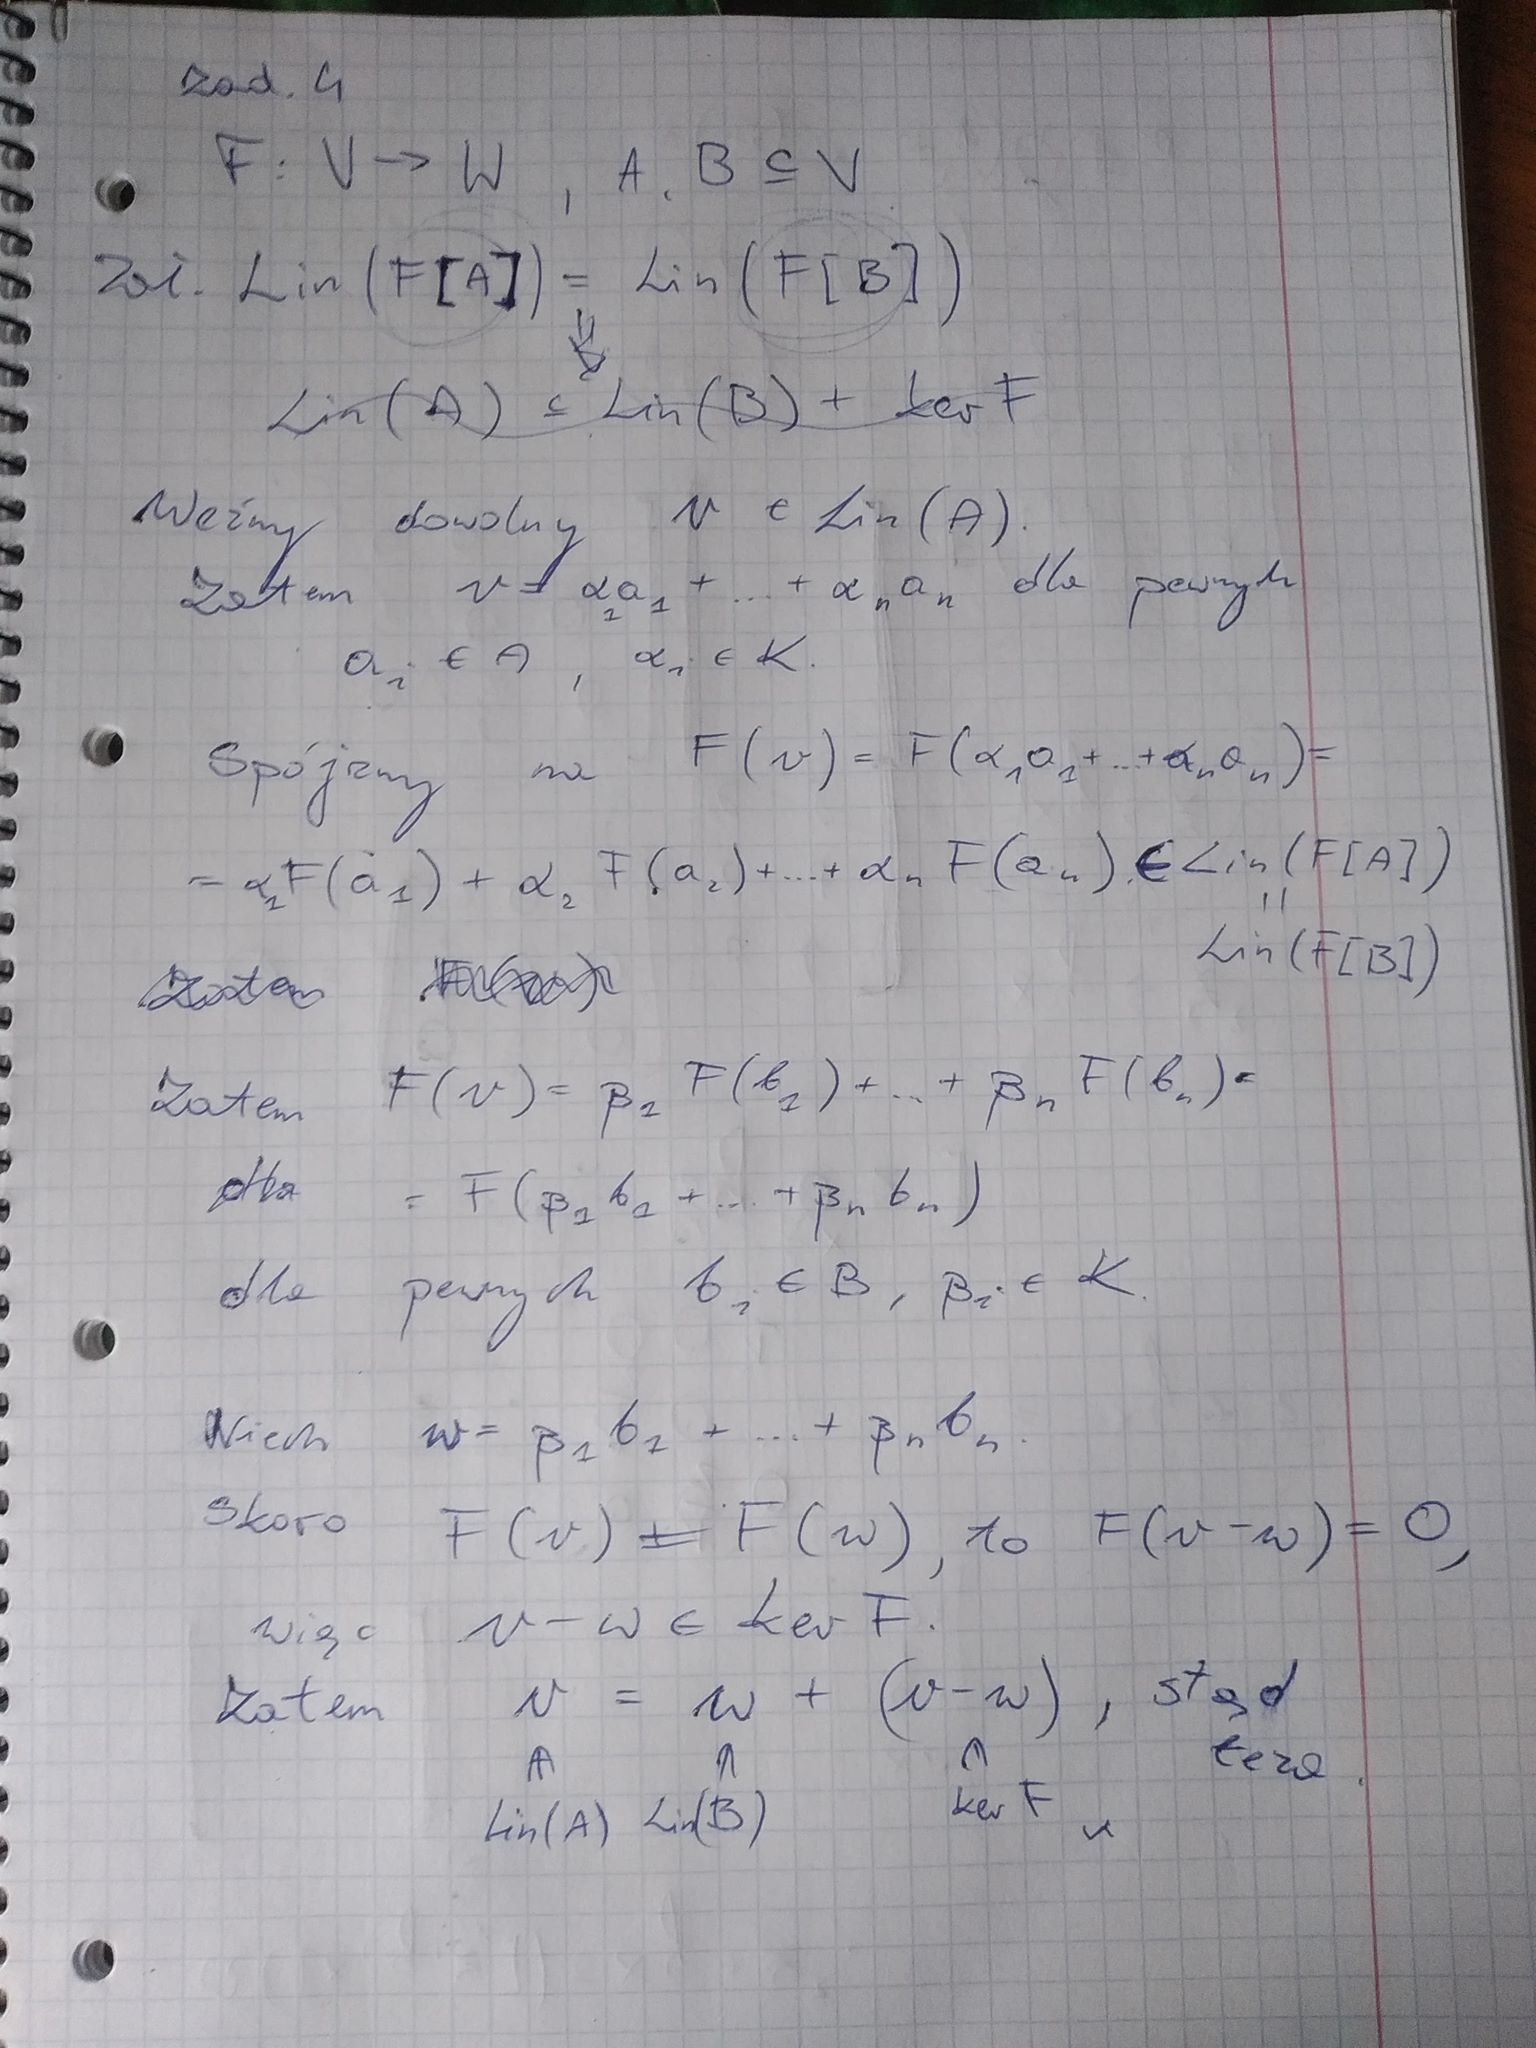 Zad. 4
F: V → W, A, B ⊆ V
Zał. Lin(F[A]) = Lin(F[B])
⇓
Lin(A) ⊆ Lin(B) + ker F
Weźmy dowolny v ∈ Lin(A).
Zatem v = α₁a₁ + ... + αₙaₙ dla pewnych
aᵢ ∈ A, αᵢ ∈ K.
Spójrzmy na F(v) = F(α₁a₁ + ... + αₙaₙ) =
= α₁F(a₁) + α₂ F(a₂) + ... + αₙ F(aₙ) ∈ Lin(F[A])
||
Lin(F[B])
Zatem F(v) = β₁ F(b₁) + ... + βₙ F(bₙ) =
= F(β₁b₁ + ... + βₙbₙ)
dla pewnych bᵢ ∈ B, βᵢ ∈ K.
Niech w = β₁b₁ + ... + βₙbₙ.
Skoro F(v) = F(w), to F(v-w) = 0,
więc v-w ∈ ker F.
Zatem v = w + (v-w), stąd
teza.
Lin(A) Lin(B) ker F